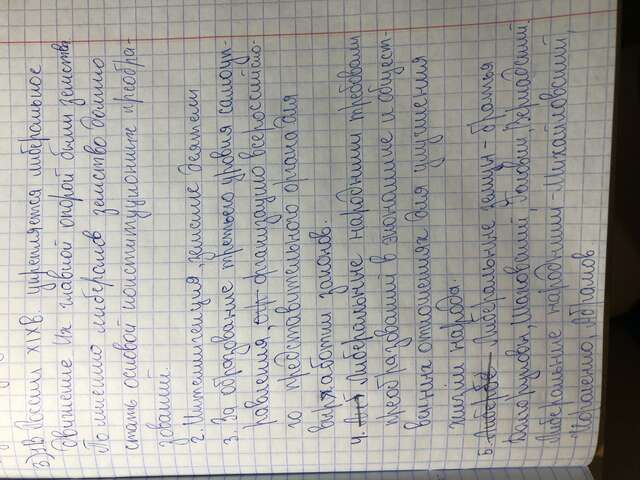 3) 1. В России XIX в. укрепляется либеральное
движение. Их главной опорой были земства.
По мнению либералов земство должно
стать основой конституционных преобра-
зований.
2. Интеллигенция, земские деятели
3. За образование третьего уровня самоуп-
равления, организацию всероссийско-
го представительного органа для
выработки законов.
4. Либеральные народники требовали
преобразований в экономике и общест-
венных отношениях для улучшения
жизни народа.
5. Либеральные земцы - братья
Долгоруковы, Шаховской, Головин, Вернадский
Либеральные народники - Михайловский,
Абрамов